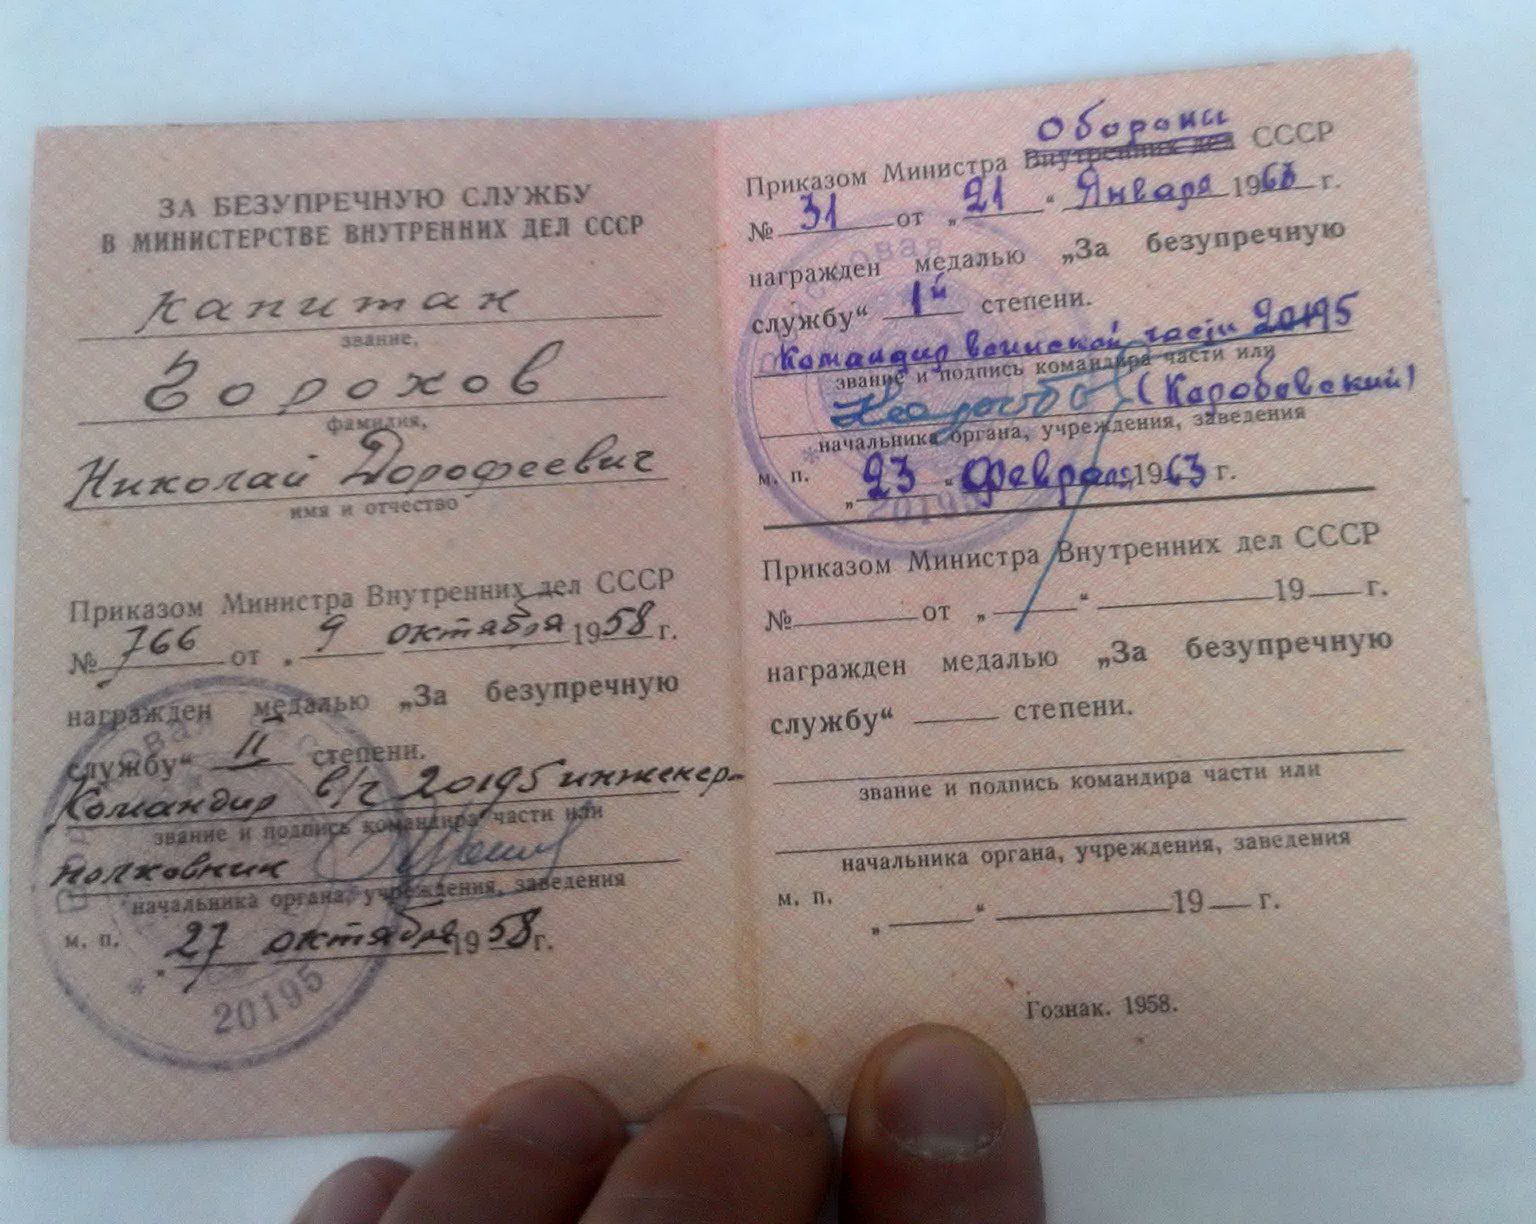 ЗА БЕЗУПРЕЧНУЮ СЛУЖБУ
В МИНИСТЕРСТВЕ ВНУТРЕННИХ ДЕЛ СССР
капитан
звание,
Горохов
фамилия,
Николай Дорофеевич
имя и отчество
Приказом Министра Внутренних дел СССР
№ 766 от „ 9 октября 1958 г.
награжден медалью „За безупречную
службу“ II степени.
Командир в/ч 20195 инженер-
звание и подпись командира части или
полковник
начальника органа, учреждения, заведения
м. п. „ 27 октября 1958 г.
20195
Обороны
Приказом Министра Внутренних дел СССР
№ 31 от „ 21 “ Января 1963 г.
награжден медалью „За безупречную
службу“ 1й степени.
Командир воинской части 20195
звание и подпись командира части или
(Коробовский)
начальника органа, учреждения, заведения
м. п. „ 23 “ Февраля 1963 г.
20195
Приказом Министра Внутренних дел СССР
№ от „ “ 19 г.
награжден медалью „За безупречную
службу“ степени.
звание и подпись командира части или
начальника органа, учреждения, заведения
м. п. „ “ 19 г.
Гознак. 1958.